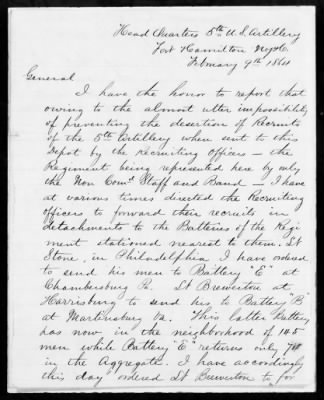 Head Quarters 5th U.S. Artillery
Fort Hamilton N.Y.H.
February 9th 1864
General
I have the honor to report that
owing to the almost utter impossibility
of preventing the desertion of Recruits
of the 5th Artillery when sent to this
Depot by the recruiting Officers — the
Regiment being represented here by only
the Non Com'd Staff and Band — I have
at various times directed the Recruiting
Officers to forward their recruits in
detachments to the Batteries of the Regi
ment stationed nearest to them. Lt
Stone, in Philadelphia I have ordered
to send his men to Battery "E" at
Chambersburg Pa. Lt Brewerton at
Harrisburg to send his to Battery "B"
at Martinsburg Va. This latter Battery
has now in the neighborhood of 145
men while Battery "E" returns only
in the Aggregate. I have accordingly
this day ordered Lt Brewerton to for